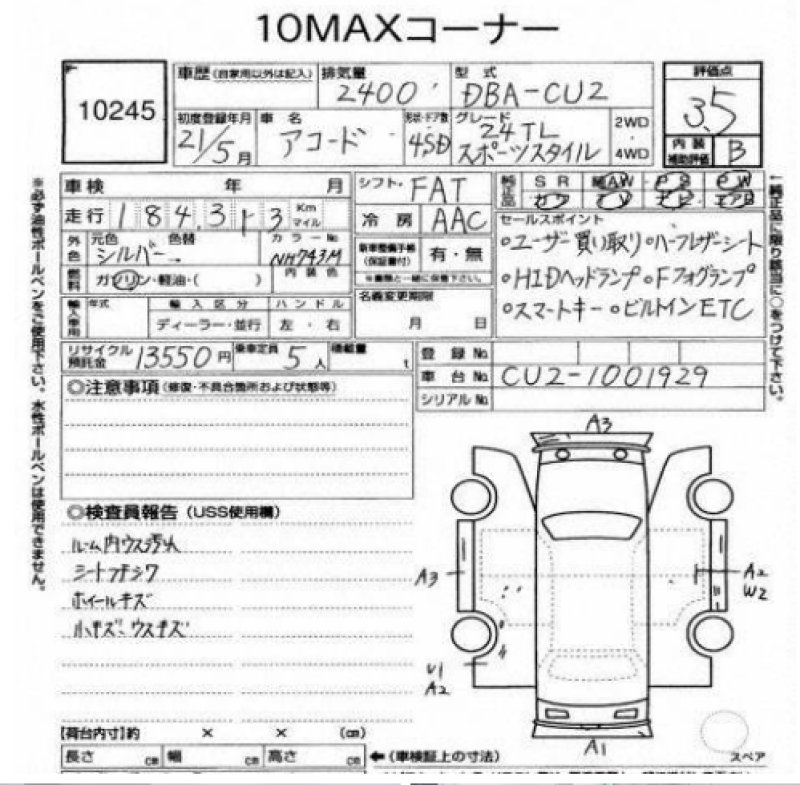 10MAXコーナー
10245
車歴(自家用以外は記入)
排気量
2400
型式
DBA-CU2
評価点
3.5
初度登録年月
21/5月
車名
アコード
形状・ドア数
4SD
グレード
24TL
スポーツスタイル
2WD
・
4WD
内装
補助評価
B
車検 年 月
シフト・FAT
純正品
SR
AW
PS
PW
走行 184,313 Km
マイル
冷房 AAC
セールスポイント
外色
元色
シルバー
色替
カラーNo.
NH743M
内装色
新車整備手帳
(保証書付)
有・無
○ユーザー買い取り○ハーフレザーシート
燃料
ガソリン・軽油・( )
○HIDヘッドランプ○Fフォグランプ
輸入車用
年式
輸入区分
ハンドル
名義変更期限
月 日
○スマートキー○ビルトインETC
ディーラー・並行
左・右
リサイクル
預託金
13550円
乗車定員
5人
積載量
t
登録No.
車台No.
CU2-1001929
シリアルNo.
◎注意事項(修復・不具合箇所および状態等)
◎検査員報告(USS使用欄)
ルーム内ウス汚れ
シートフチシワ
ホイールキズ
小キズ、ウスキズ
A3
A3
A2
W2
U1
A2
A1
スペア
【荷台内寸】約 × × (cm)
長さ cm 幅 cm 高さ cm
←(車検証上の寸法)
※必ず油性ボールペンをご使用下さい。水性ボールペンは使用できません。
↑純正品に限り該当に○をつけて下さい。